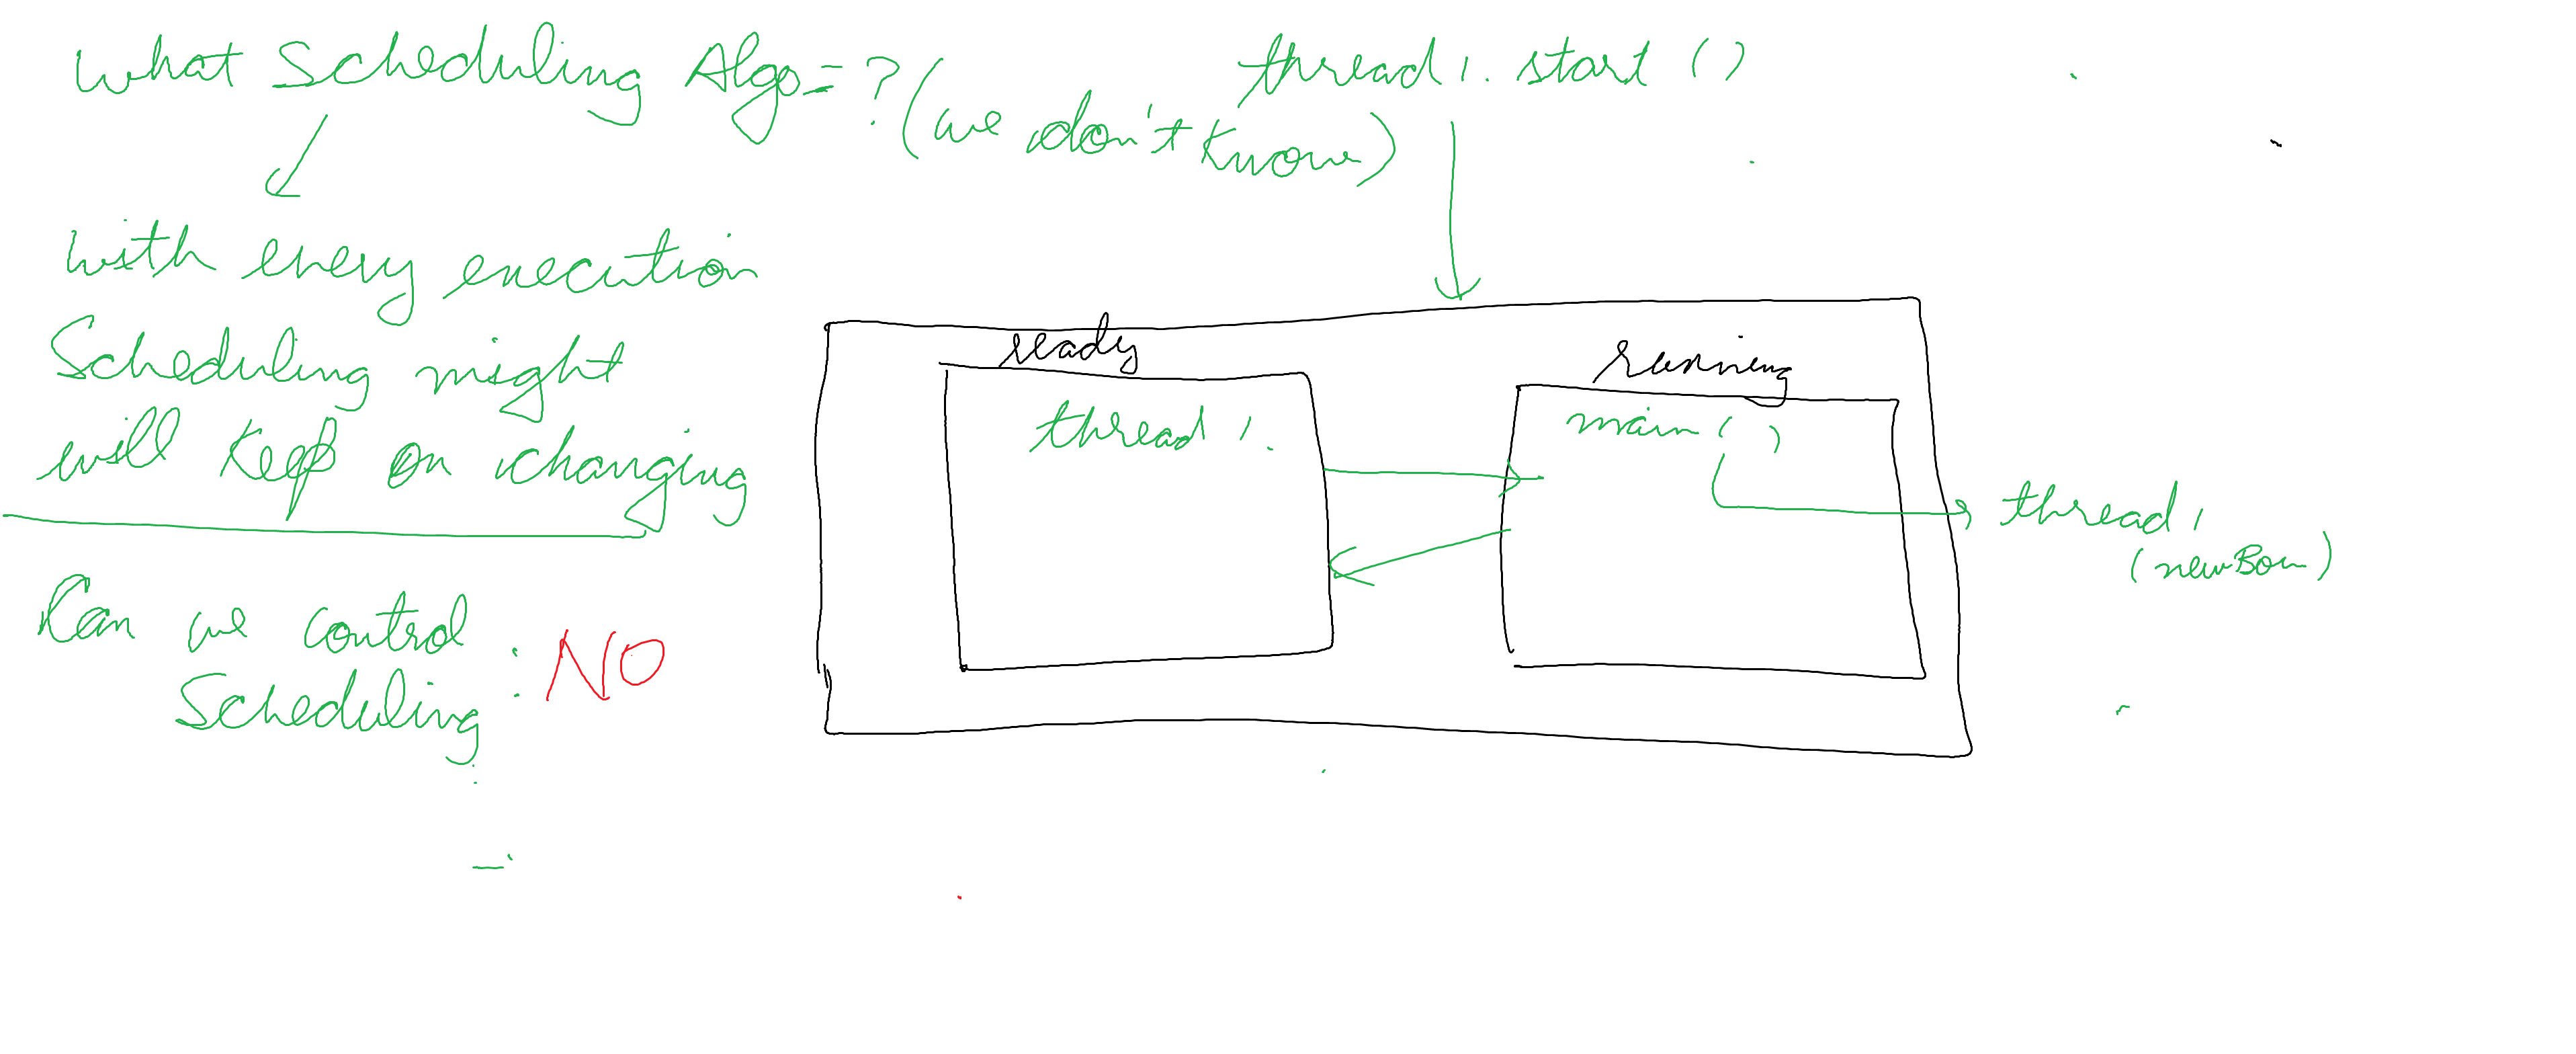 What Scheduling Algo = ? (we don't know)
with every execution
Scheduling might
will keep on changing
Can we control
Scheduling : NO
thread1.start()
ready
running
thread1.
main( )
thread1
(newBorn)